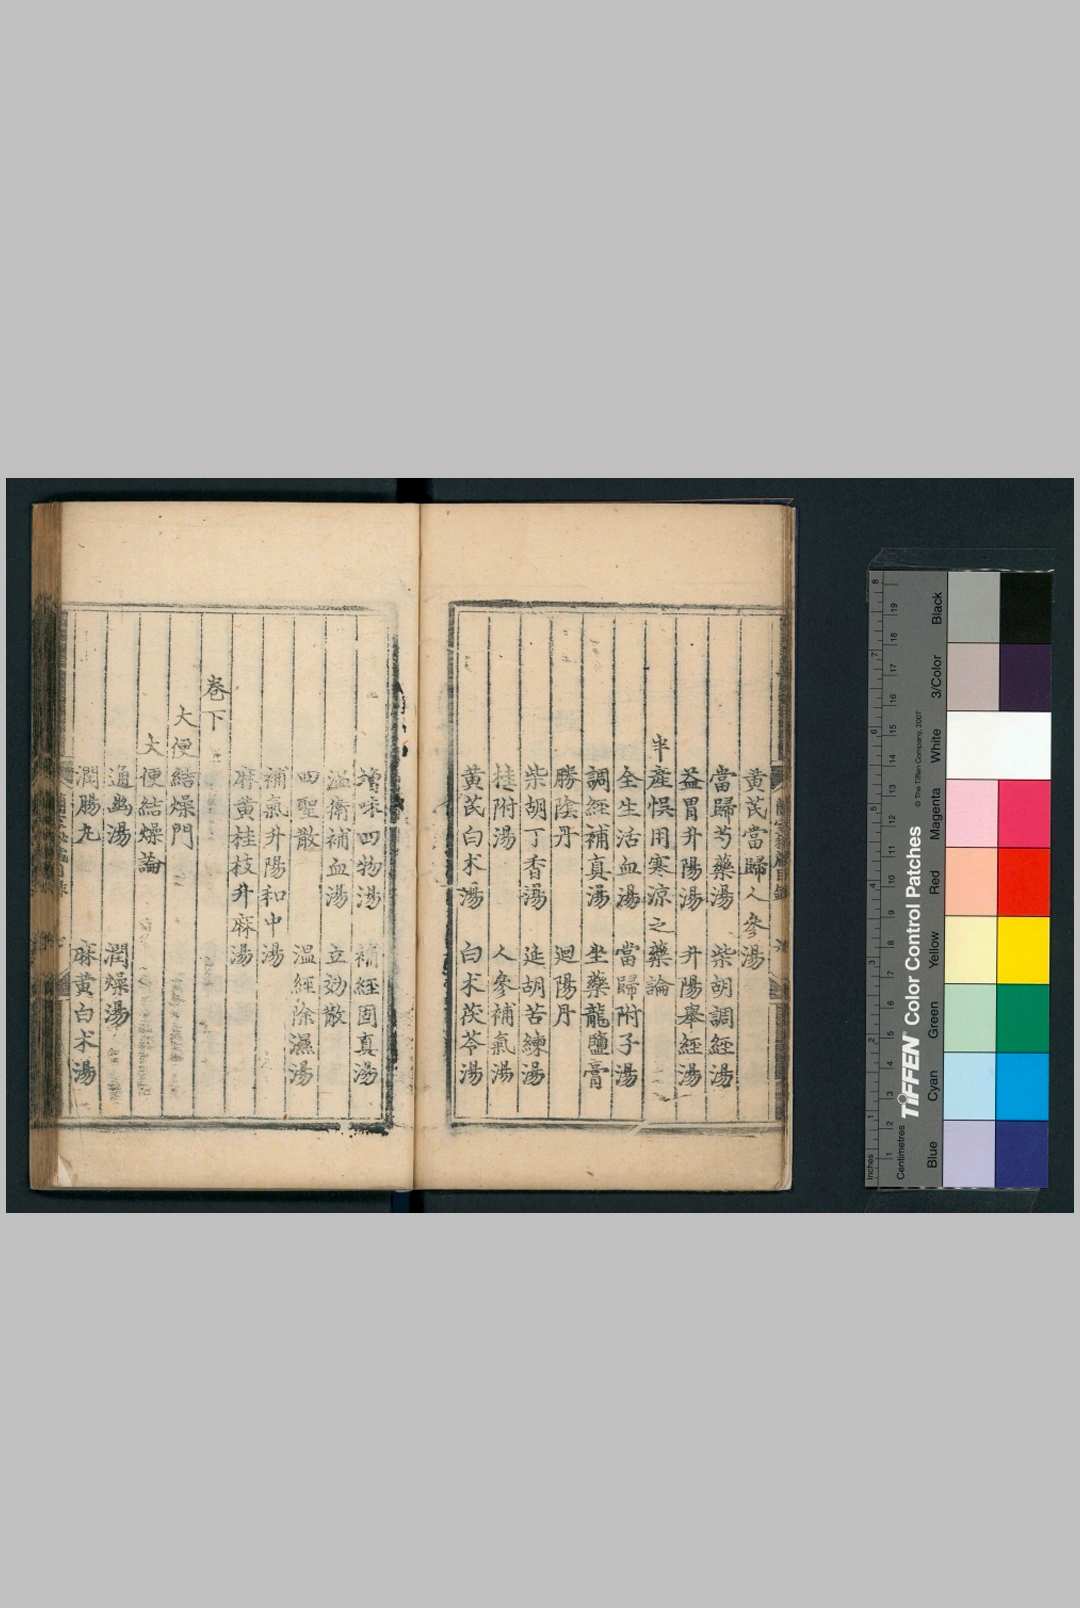 黃芪當歸人參湯
當歸芍藥湯 柴胡調經湯
益胃升陽湯 升陽舉經湯
半產悞用寒涼之藥論
全生活血湯 當歸附子湯
調經補真湯 坐藥龍鹽膏
勝陰丹 迴陽丹
柴胡丁香湯 延胡苦練湯
桂附湯 人參補氣湯
黃芪白朮湯 白朮茯苓湯
增味四物湯 補經固真湯
溫衛補血湯 立効散
四聖散 溫經除濕湯
補氣升陽和中湯
麻黃桂枝升麻湯
卷下
大便結燥門
大便結燥論
通幽湯 潤燥湯
潤腸丸 麻黃白朮湯
Black
3/Color
White
Magenta
Red
Yellow
Green
Cyan
Blue
© The Tiffen Company, 2007
TIFFEN Color Control Patches
Centimetres
Inches